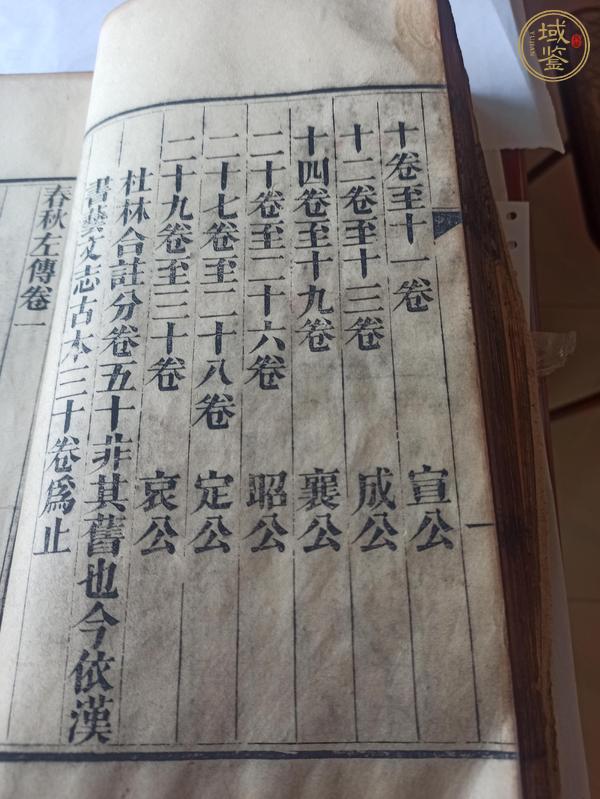 十卷至十一卷　宣公
十二卷至十三卷　成公
十四卷至十九卷　襄公
二十卷至二十六卷　昭公
二十七卷至二十八卷　定公
二十九卷至三十卷　哀公
杜林合註分卷五十非其舊也今依漢
書藝文志古本三十卷爲止
春秋左傳卷一
域鉴
YUJIAN